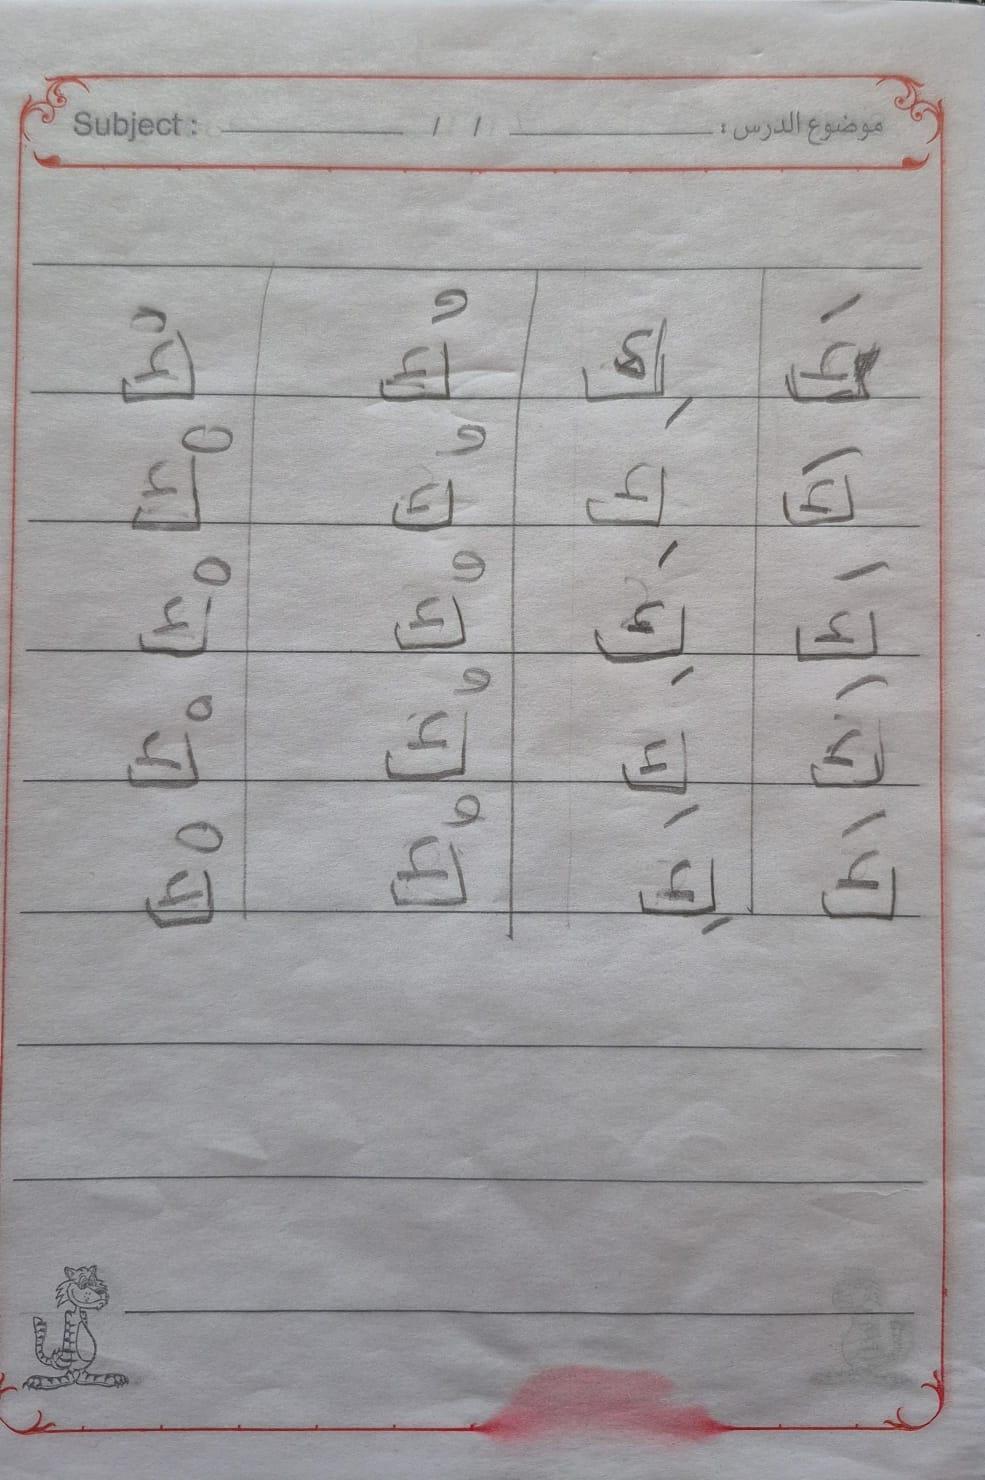 Subject : / / موضوع الدرس :
كَ كِ كُ كْ
كَ كِ كُ كْ
كَ كِ كُ كْ
كَ كِ كُ كْ
كَ كِ كُ كْ